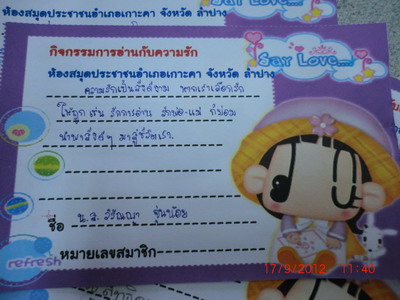 ห้องสมุดประชาชนอำเภอเกาะคา จังหวัด ลำปาง
กิจกรรมการอ่านกับความรัก
Say Love....
ห้องสมุดประชาชนอำเภอเกาะคา จังหวัด ลำปาง
ความรักเป็นสิ่งดีงาม หากเราเลือกรัก
ให้ถูก เช่น รักการอ่าน รักพ่อ-แม่ ก็ย่อม
นำพาสิ่งดีๆ มาสู่ชีวิตเรา
ชื่อ น.ส.
หมายเลขสมาชิก
refresh
17/9/2012 11:40